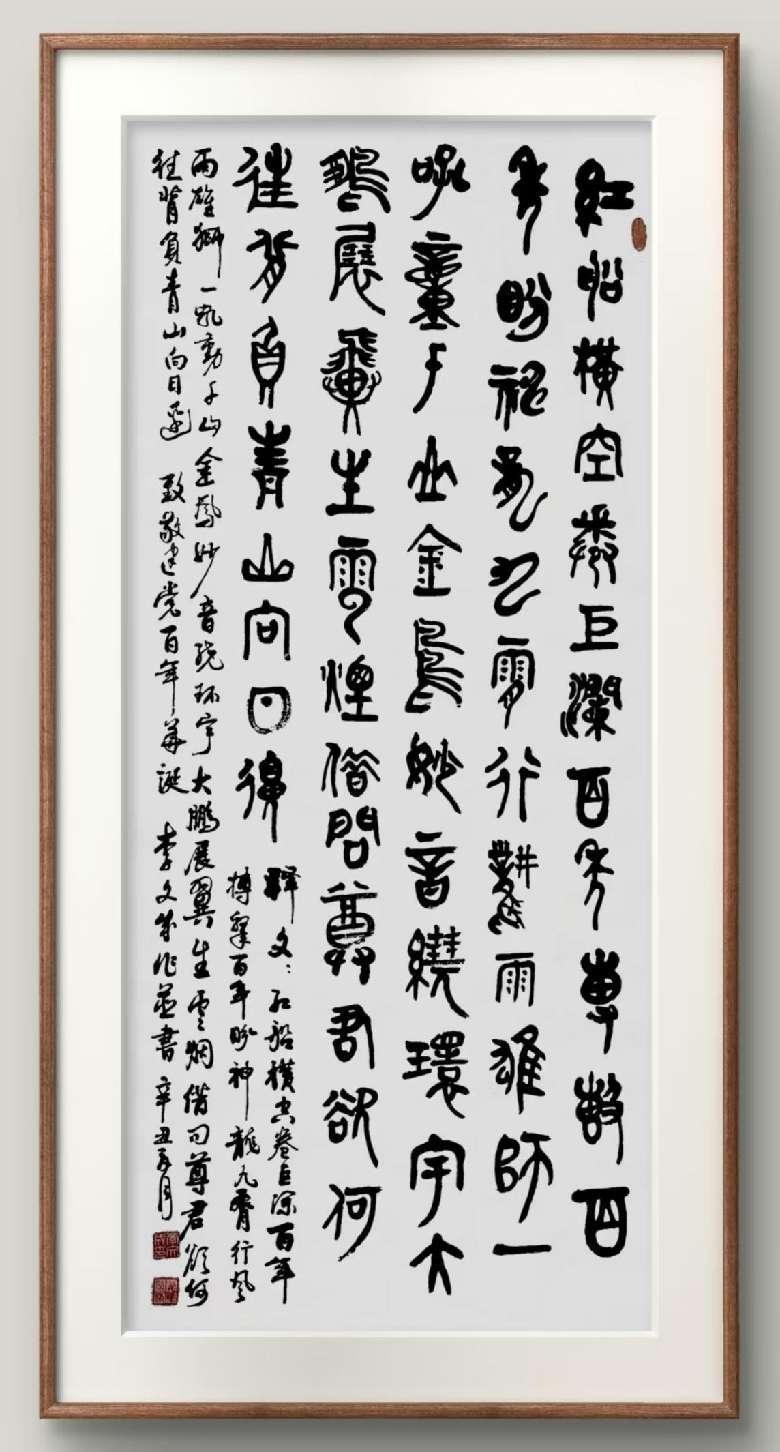 紅船橫空卷巨瀾百年專擊百
年盼神龍九霄行風雨雄師一
吼童千山金鳳妙音繞環宇大
鵬展翼生雲煙借問尊君欲何
往背負青山向日還
釋文：红船横空卷巨澜百年
搏擊百年盼神龍九霄行风
雨雄獅一吼動千山金鳳妙音绕环宇大鵬展翼生雲烟借问尊君欲何
往背負青山向日還 致敬建党百年華誕 李文成作並書 辛丑五月